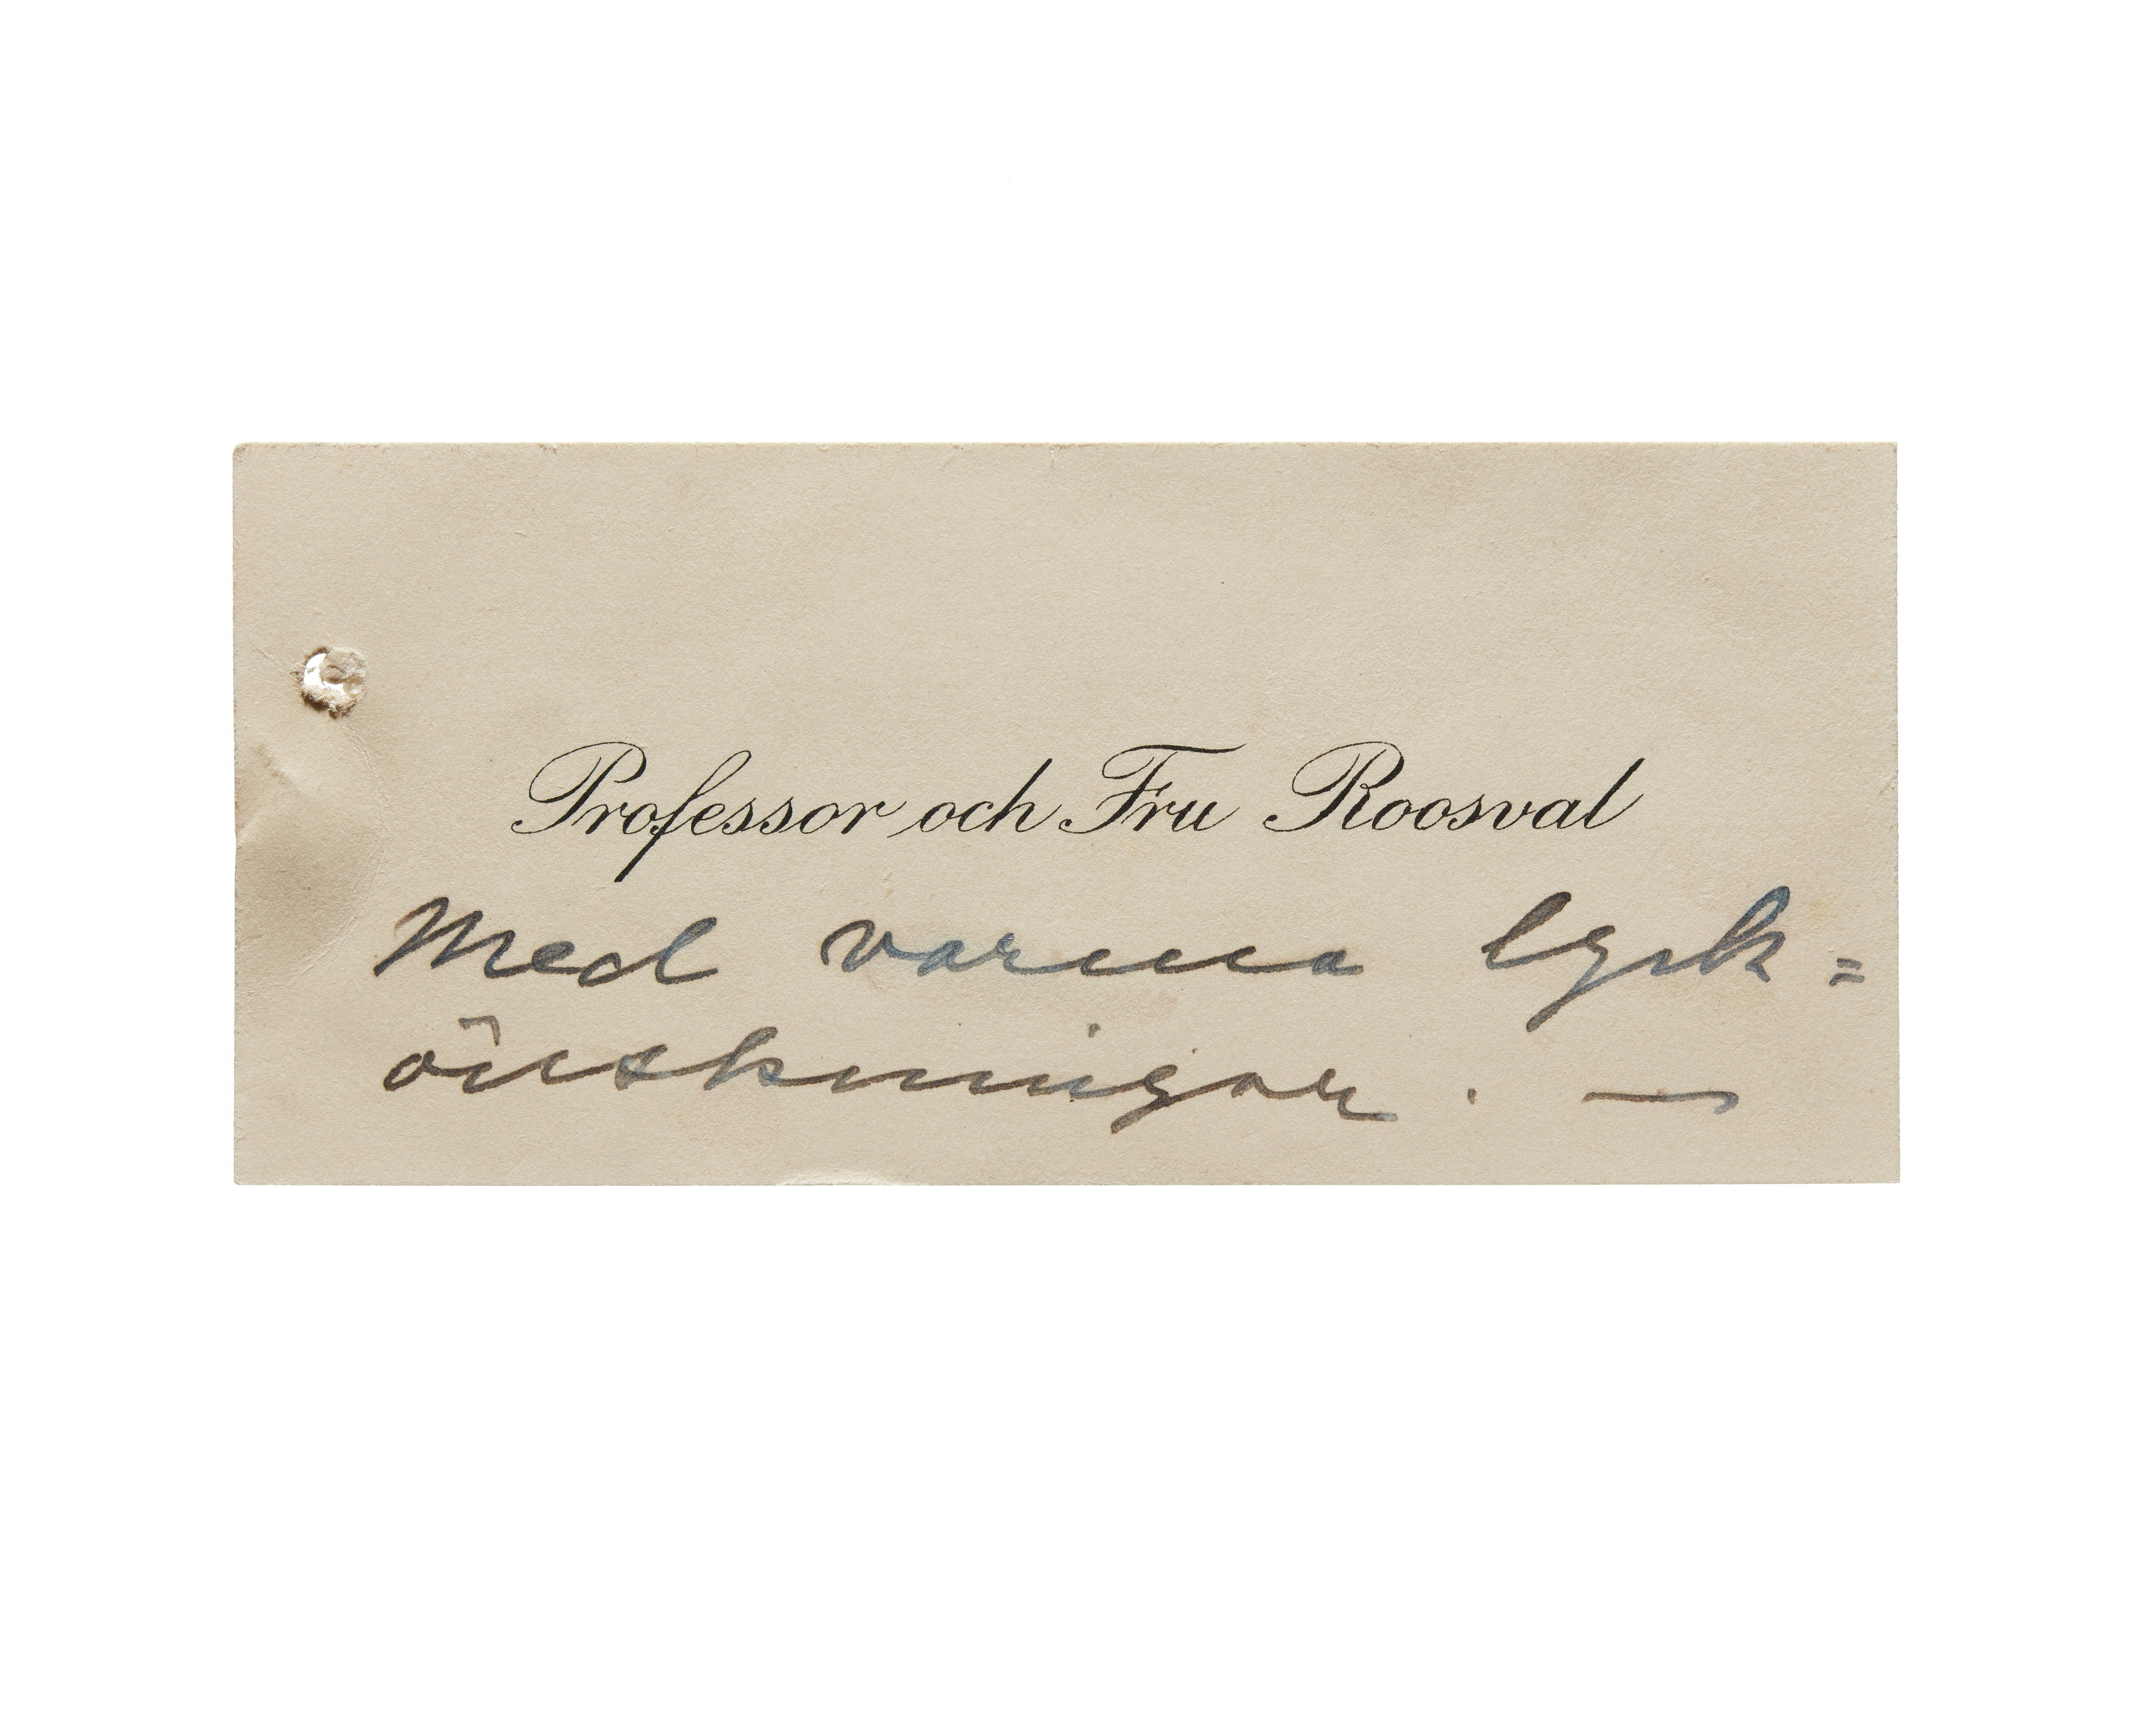 Professor och Fru Roosval
Med varma lyck=
önskningar. —